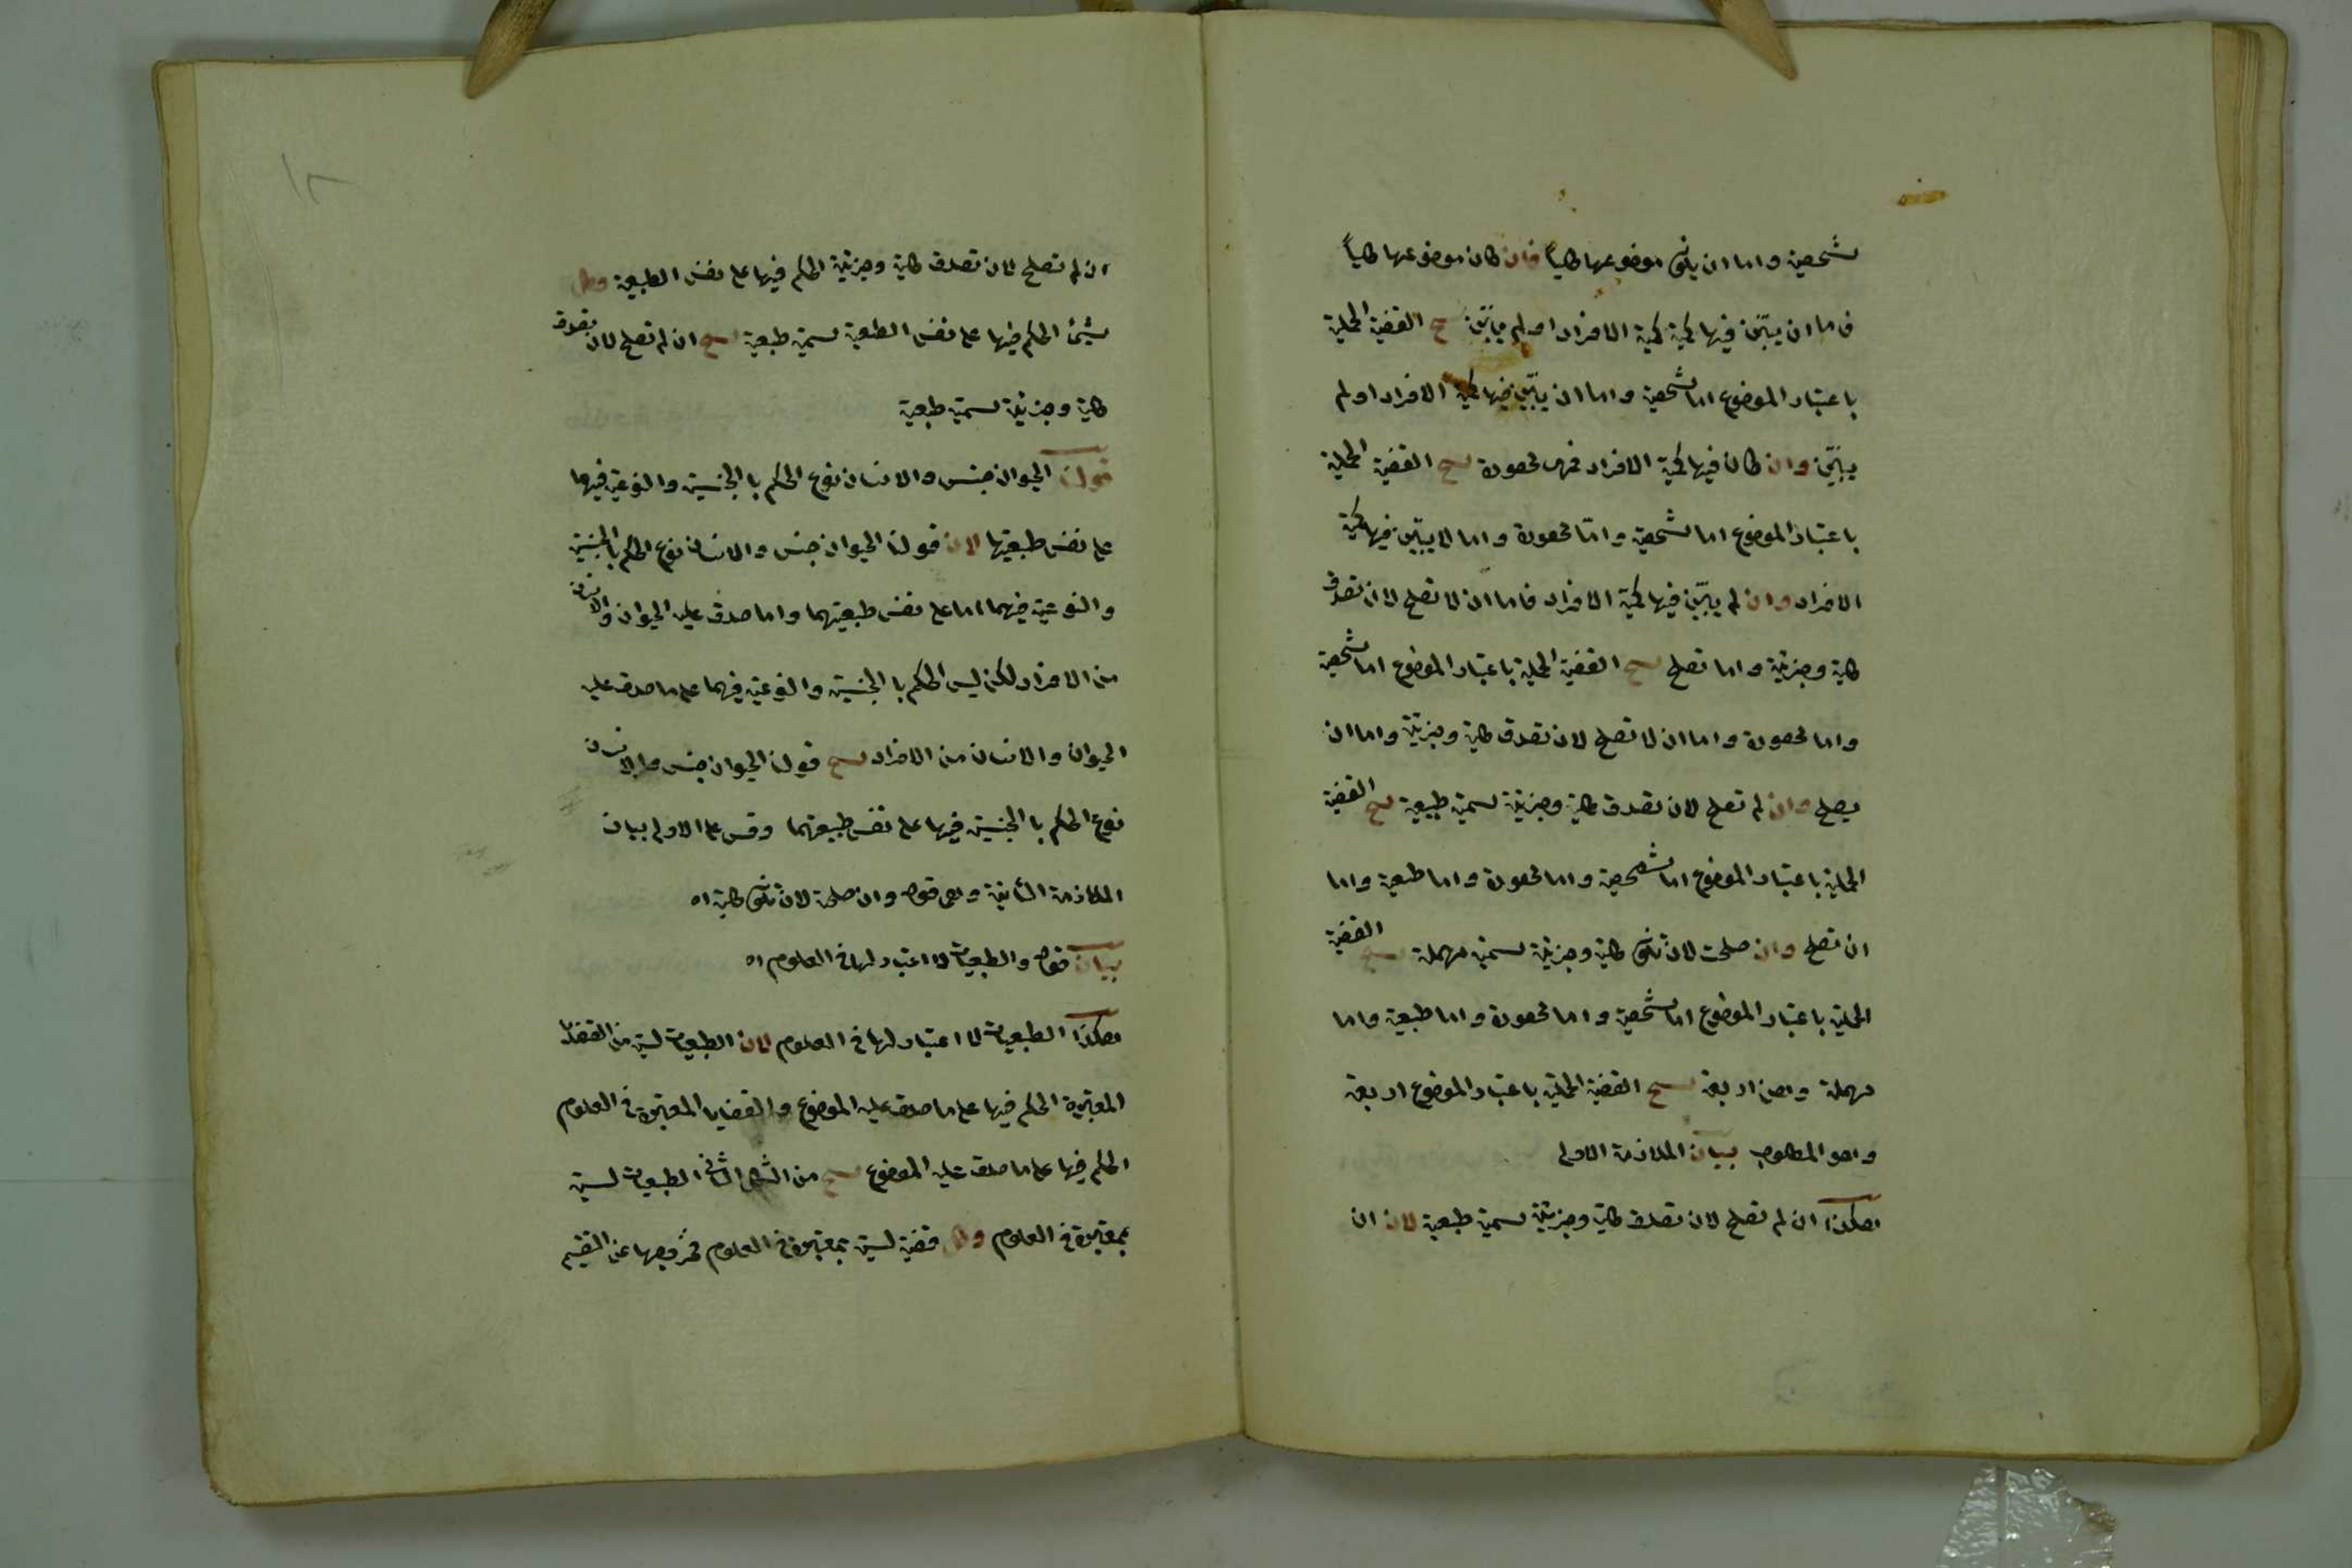 شخصية واما ان يكون موضوعها كلياً فان كان موضوعها كلياً
فاما ان يبيّن فيها كمية كمية الافراد او لم يبيّن ينتج القضية الحملية
باعتبار الموضوع اما شخصية واما ان يبيّن فيها كمية الافراد او لم
يبيّن وان كان فيها كمية الافراد فهى محصورة ينتج القضية الحملية
باعتبار الموضوع اما شخصية وامّا محصورة واما لا يبيّن فيها كمية
الافراد وان لم يبيّن فيها كمية الافراد فاما ان لا تصلح لان تصدق
كلية وجزئية واما تصلح ينتج القضية الحملية باعتبار الموضوع اما شخصية
واما محصورة واما ان لا تصلح لان تصدق كلية وجزئية واما ان
يصلح وان لم تصلح لان تصدق كلية وجزئية سميت طبيعية ينتج القضية
الحملية باعتبار الموضوع اما شخصية واما محصورة واما طبعية واما
ان تصلح وان صلحت لان تكون كلية وجزئية سميت مهملة ينتج القضية
الحملية باعتبار الموضوع اما شخصية واما محصورة واما طبعية واما
مهملة وهن اربعة ينتج القضية الحملية باعتبار الموضوع اربعة
وهو المطلوب بيان الملازمة الاولى
هكذا ان لم تصلح لان تصدق كلية وجزئية سميت طبعية لان ان
ان لم تصلح لان تصدق كلية وجزئية الحكم فيها على نفس الطبيعية وكل
شيئ الحكم فيها على نفس الطبعية سميت طبعية ينتج ان لم تصلح لان تصدق
كلية وجزئية سميت طبعية
قولنا الحيوان جنس والانسان نوع الحكم با الجنسية والنوعية فيها
على نفس طبعيتها لان قولنا الحيوان جنس والانسان نوع الحكم بالجنسية
والنوعية فيهما اما على نفس طبعيتهما واما صدق عليه الحيوان والانسان
من الافراد لكن ليس الحكم با الجنسية والنوعية فيهما على ما صدق عليه
الحيوان والانسان من الافراد ينتج قولنا الحيوان جنس والانسان
نوع الحكم با الجنسية فيها على نفس طبيعتهما وقس على الاولى بيان
الملازمة الثانية وهى قوله وان صلحة لان تكون كلية اه
بيان قوله والطبعيات لا اعتبار لها فى العلوم اه
هكذا الطبعيات لا اعتبار لها فى العلوم لان الطبعيات ليست من القضايا
المعتبرة الحكم فيها على ما صدق عليه الموضوع والقضايا المعتبرة فى العلوم
الحكم فيها على ما صدق عليه الموضوع ينتج من الشكل الثانى الطبعيات ليست
بمعتبرة فى العلوم وكل قضية ليست بمعتبرة فى العلوم فخروجها عن التقسيم